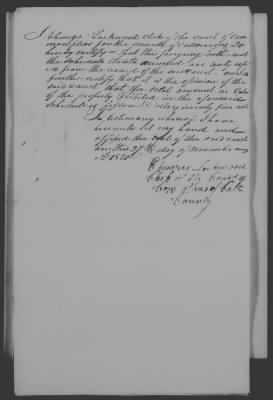 I Ebenezer Lockwood clerk of the court of Com
mon pleas for the county of Cattaraugus do
hereby certify that the foregoing oath and
the schedule thereto annexed are truly cop
ied from the record of the said court and I
further certify that it is the opinion of the
said court that the total amount in value
of the property exhibited in the aforesaid
schedule is fifteen dollars seventy five cents
In testimony whereof I have
hereunto set my hand and
affixed the seal of the said court
on this 27th day of November
AD 1820
Ebenezer Lockwood
Clerk of the Court of
Com Pleas of Catt
County